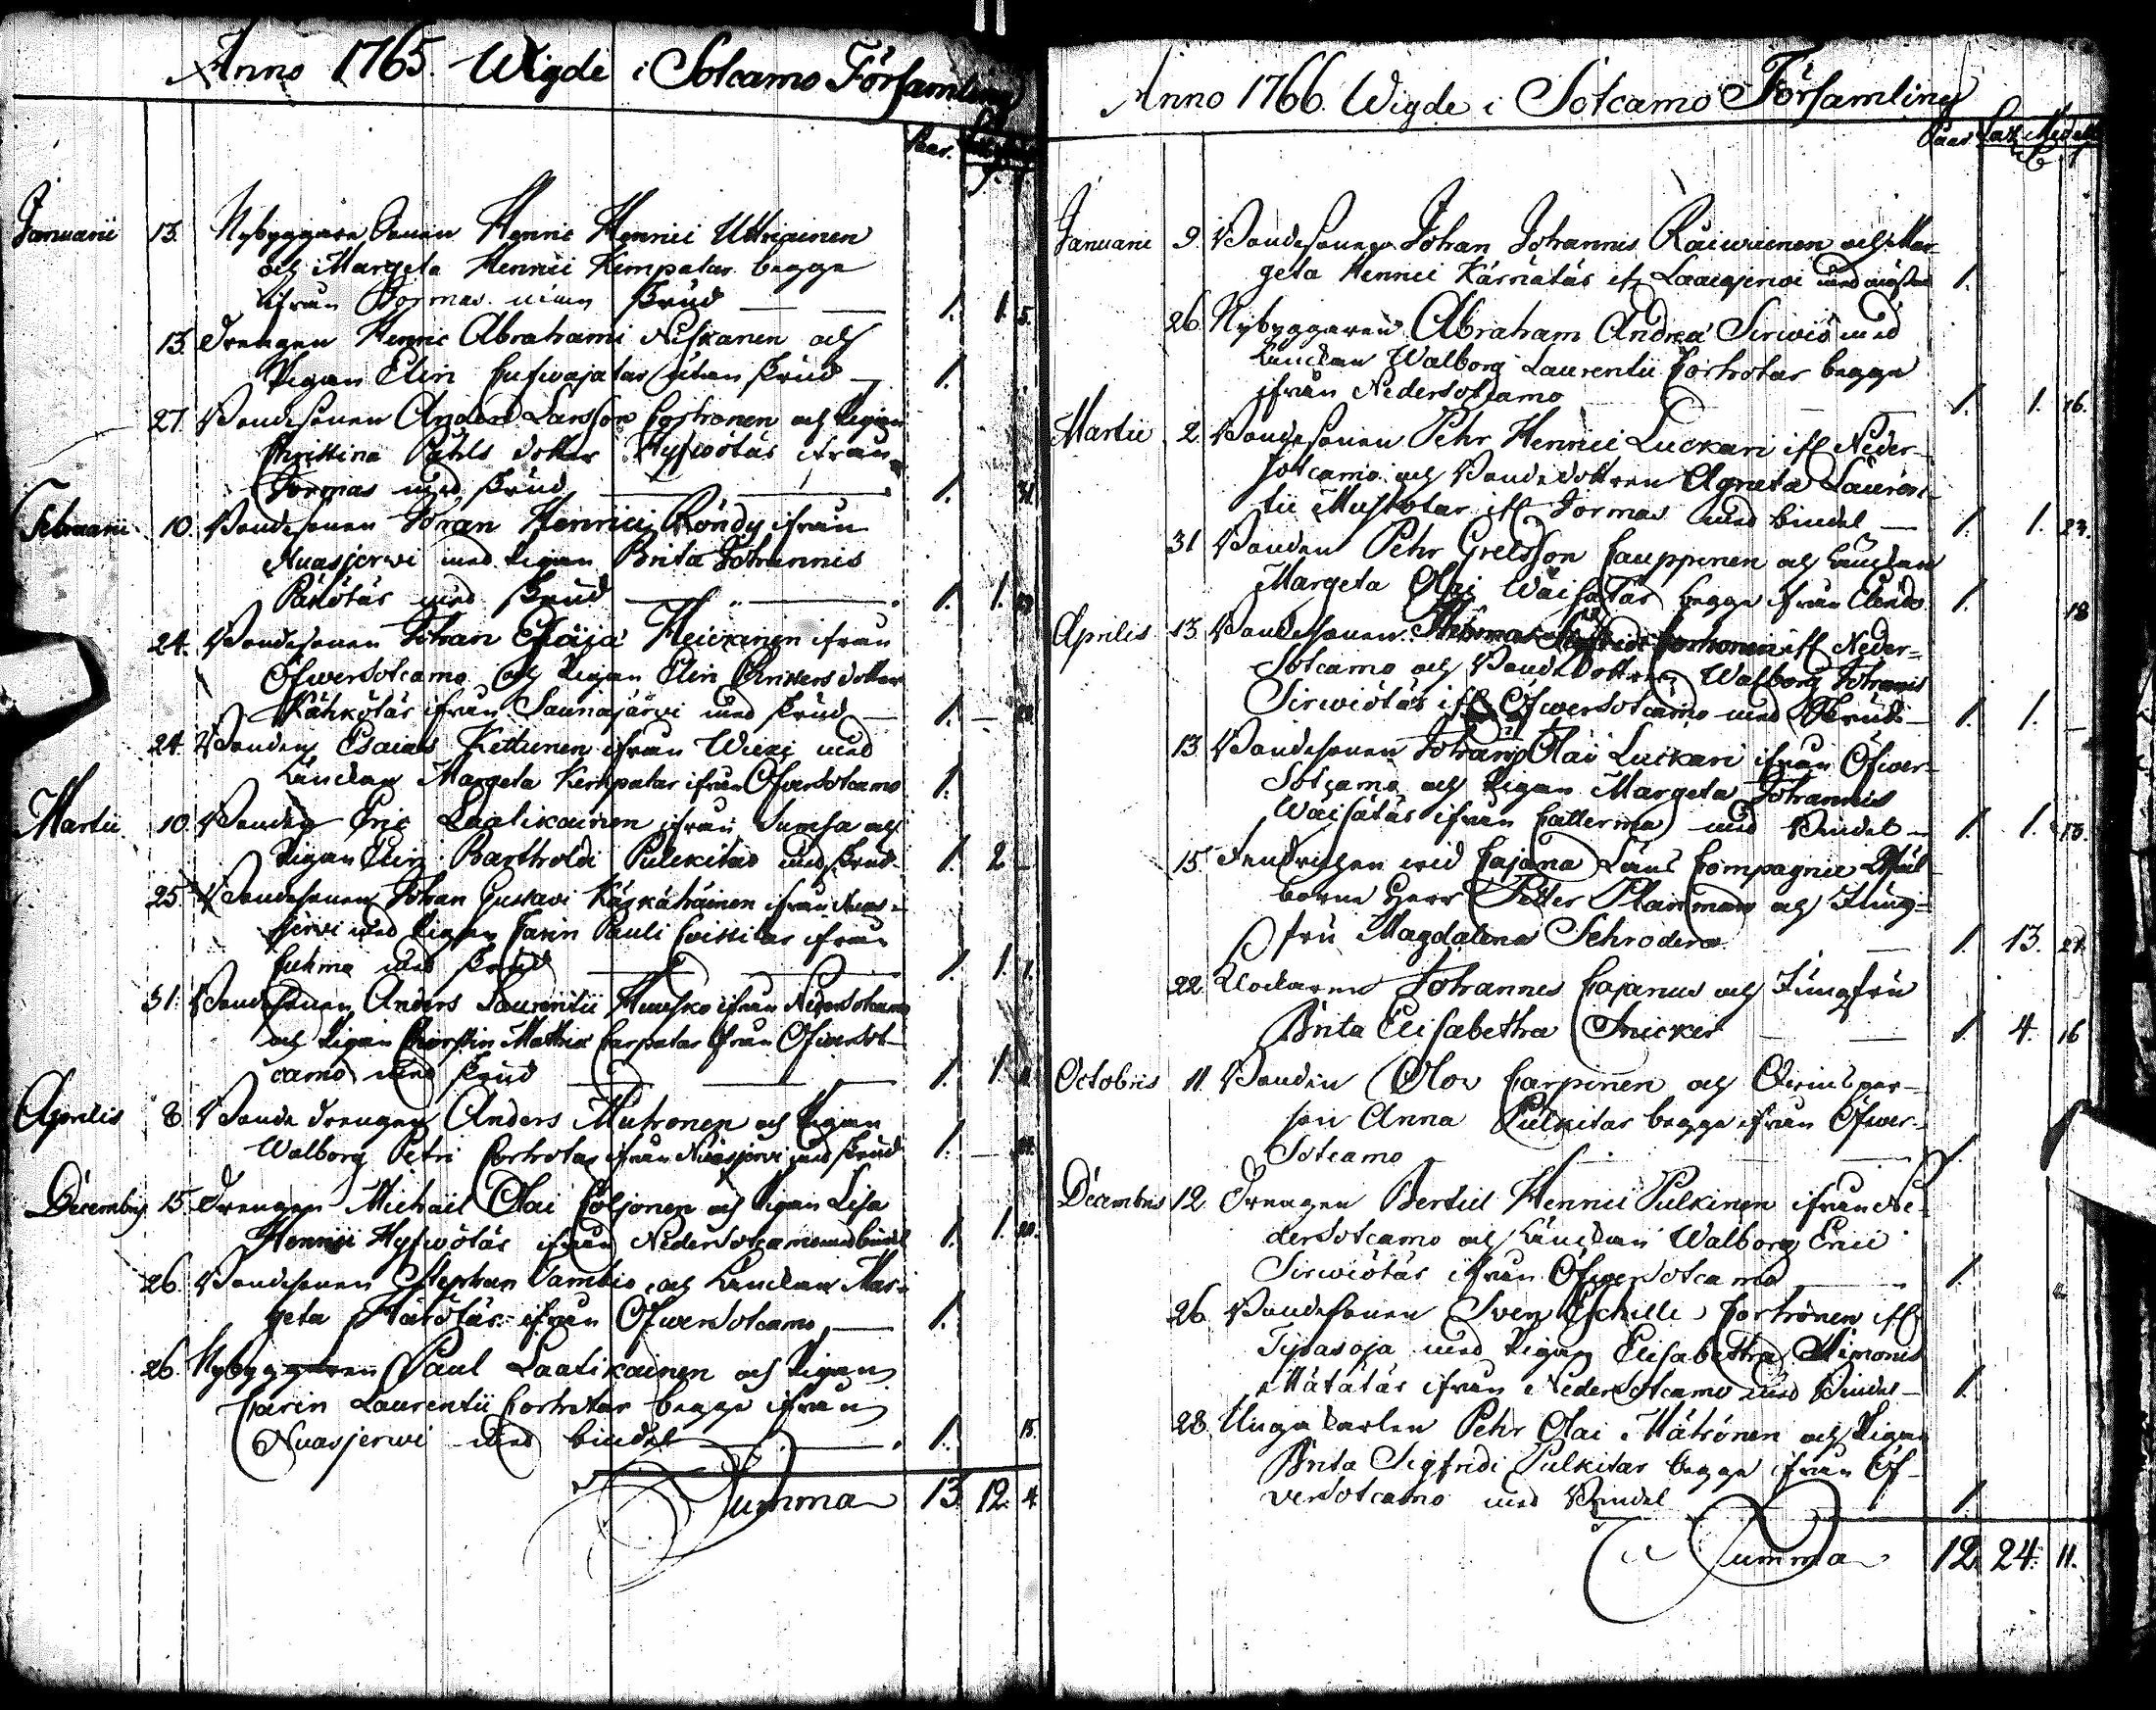 Anno 1765. Wigde i Sotcamo Församling
Paar.
Januarii 13. Nybyggare Sonen Henric Henrici Uttriainen
och Margeta Henrici Kempatar begge
ifrån Sormas utan skrud 1. 1. 5.
13. Drengen Henric Abrahami Niskanen och
Pigan Elin utan skrud 1.
27. Bondesonen Anders Larsson Corhonen och Pigan
Christina Påhls dotter Hyfwötär ifrån
Sormas med skrud 1. 31.
Februarii 10. Bondesonen Johan Henrici Röndy ifrån
Nuasjerwi med Pigan Brita Johannis
med skrud 1. 1.
24. Bondesonen Johan Esaiæ Heickinen ifrån
Öfwersotcamo och Pigan Elin Christers dotter
Kähkötär ifrån Saunajärvi med skrud 1.
24. Bonden Esaias Kettunen ifrån Wiexi med
Änckan Margeta Kempatar ifrån Öfwersotcamo 1.
Martii 10. Bonden Eric Laatikainen ifrån Sumsa och
Pigan Elin Bartholdi Pulckitar med skrud 1. 2.
25. Bondesonen Johan Gustavi Käykähäinen ifrån Nuas-
jerwi med Pigan Carin Pauli ifrån
Cuhmo med skrud 1. 1. 1.
31. Bondesonen Anders Laurentii Huusko ifrån Nedersotcamo
och Pigan Kierstin Matthiæ Carpatar ifrån Öfwersot-
camo med skrud 1. 1.
Aprilis 8. Bonde drengen Anders Muhonen och Pigan
Walborg Petri Corhotar ifrån Nuasjerwi med skrud 1.
Decembris 15. Drengen Michael Olai Coljonen och Pigan Lisa
Henrici Hyfwötär ifrån Nedersotcamo med bindel 1. 1.
26. Bondesonen Stephan Tambio och Änckan Mar-
geta Härötär ifrån Öfwersotcamo 1.
26. Nybyggaren Paul Laatikainen och Pigan
Carin Laurentii Corhotar begge ifrån
Nuasjerwi med bindel 1. 15.
Summa 13. 12. 4.
Anno 1766. Wigde i Sotcamo Församling
Paar
Januarii 9. Bondesonen Johan Johannis Räiwinen och Mar-
geta Henrici Kärnätär if. Laacajerwi med 1.
26. Nybyggaren Abraham Andreæ Sirwiö med
Änckan Walborg Laurentii Corhotar begge
ifrån Nedersotcamo 1. 1. 16.
Martii 2. Bondesonen Pehr Henrici Luckari if. Neder-
sotcamo och Bondedottren Agneta Lauren-
tii Mustotar if. Sormas med bindel 1. 1. 23.
31 Bonden Pehr Grelsson Cauppinen och Änckan
Margeta Olai Wäisätär begge ifrån 1. 18
Aprilis 13. Bondesonen Thomas Sigfridi Corhonen if. Neder-
sotcamo och Bondedottren Walborg Johannis
Sirwiötär if. Öfwersotcamo med Skrud 1. 1. —
13 Bondesonen Johan Olai Luckari ifrån Öfwer-
Sotcamo och Pigan Margeta Johannis
Wäisätär ifrån Callerma med Bindel 1. 1. 13.
15. Fendrichen wid Cajana Läns Compagnie Wäl-
borne Herr Petter Planman och Jung-
fru Magdalena Schrodera 1. 13. 21.
22. Klockaren Johannes Cajanus och Jungfru
Brita Elisabetha Snicker 1. 4. 16
Octobris 11. Bonden Olov Carpinen och Qwinsper-
son Anna Pulkitar begge ifrån Öfwer-
Sotcamo 1.
Decembris 12. Drengen Bertil Henrici Pulkinen ifrån Ne-
dersotcamo och Änckan Walborg Erici
Sirwiötär ifrån Öfwersotcamo 1.
26. Bondesonen Sven Eschilli Corhonen if.
Tipasoja med Pigan Elisabetha Simonis
Mätätär ifrån Nedersotcamo med Bindel 1.
28. Unga karlen Pehr Olai Mähönen och Pigan
Brita Sigfridi Pulkitar begge ifrån Öf-
versotcamo med Bindel 1.
Summa 12. 24. 11.